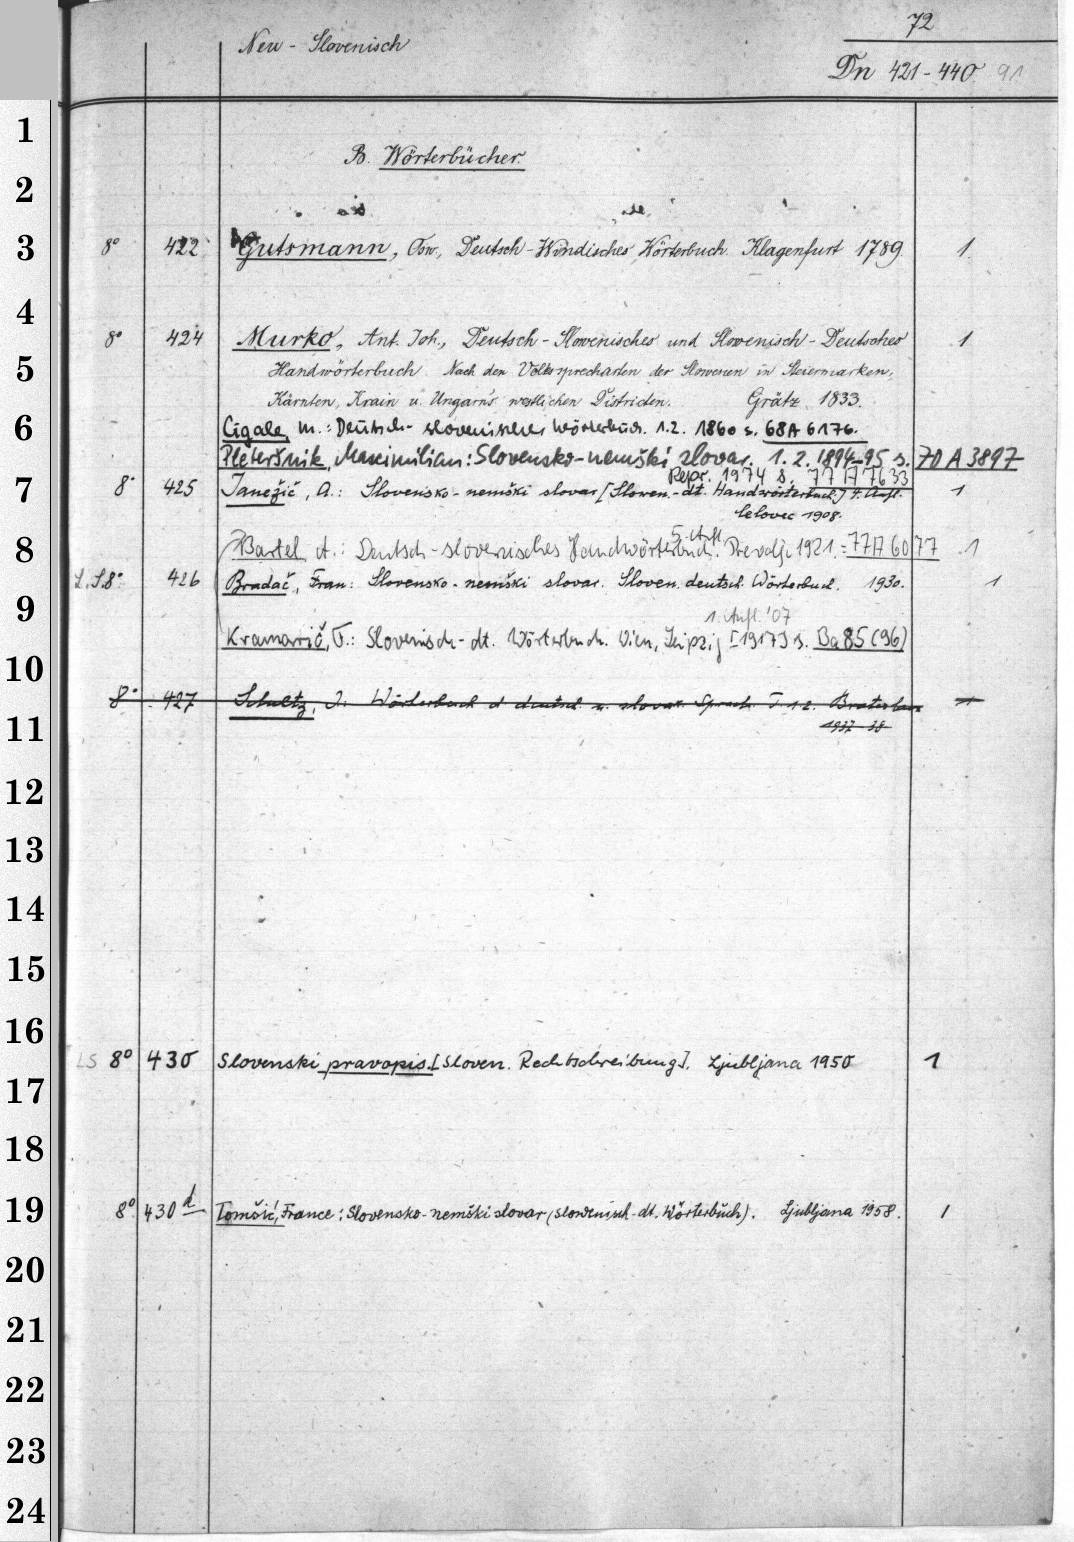 72
Neu - Slovenisch
Dn 421-440 91
B. Wörterbücher.
8° 422 Gutsmann, Osw., Deutsch-Windisches Wörterbuch. Klagenfurt 1789. 1.
8° 424 Murko, Ant. Joh., Deutsch-Slowenisches und Slowenisch-Deutsches 1
Handwörterbuch. Nach den Volkssprecharten der Slowenen in Steiermarken,
Kärnten, Krain u. Ungarns westlichen Distrikten. Grätz 1833.
Cigale, M.: Deutsch-slovenisches Wörterbuch. 1.2. 1860 s. 68A6176.
Pleteršnik, Maximilian: Slovensko-nemški slovar. 1.2. 1894-95 s. 70 A 3897
Repr. 1974 s. 77 A 7633
8° 425 Janežič, A.: Slovensko-nemški slovar [Slowen.-dt. Handwörterbuch] 4. Aufl. 1
Celovec 1908.
5. Aufl.
Bartel A.: Deutsch-slovenisches Handwörterbuch. Prevalje 1921. = 77 A 6077 1
L.S.8° 426 Bradač, Fran: Slovensko-nemški slovar. Sloven. deutsch. Wörterbuch. 1930. 1
1. Aufl. '07
Kramarič, J.: Slovenisch-dt. Wörterbuch. Wien, Leipzig [1917] s. Ba 85 (96)
8° 427 Schultz, J. Wörterbuch d deutsch u. slovak. Sprach. T. 1 2. Bratislava 1
1937-38
LS 8° 430 Slovenski pravopis. [Sloven. Rechtschreibung]. Ljubljana 1950 1
8° 430 d Tomšič, France: Slovensko-nemški slovar (slowenisch-dt. Wörterbuch). Ljubljana 1958. 1
1
2
3
4
5
6
7
8
9
10
11
12
13
14
15
16
17
18
19
20
21
22
23
24